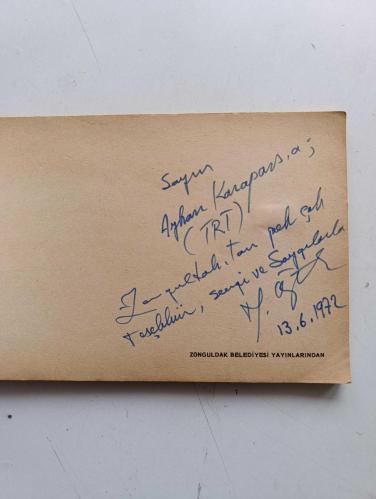 Sayın
Ayhan Karapars'a;
(TRT)
Zonguldak'tan pek çok
teşekkür, sevgi ve Saygılarla
13.6.1972
ZONGULDAK BELEDİYESİ YAYINLARINDAN